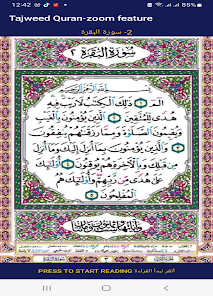 12:42
Tajweed Quran-zoom feature
2- سورة البقرة
سورة البقرة ٢
بسم الله الرحمن الرحيم
الم ذلك الكتب لا ريب فيه
هدى للمتقين الذين يؤمنون بالغيب
ويقيمون الصلوة ومما رزقنهم
ينفقون والذين يؤمنون بما أنزل
إليك وما أنزل من قبلك
وبالآخرة هم يوقنون أولئك
على هدى من ربهم وأولئك هم
المفلحون
PRESS TO START READING أنقر لبدأ القراءة